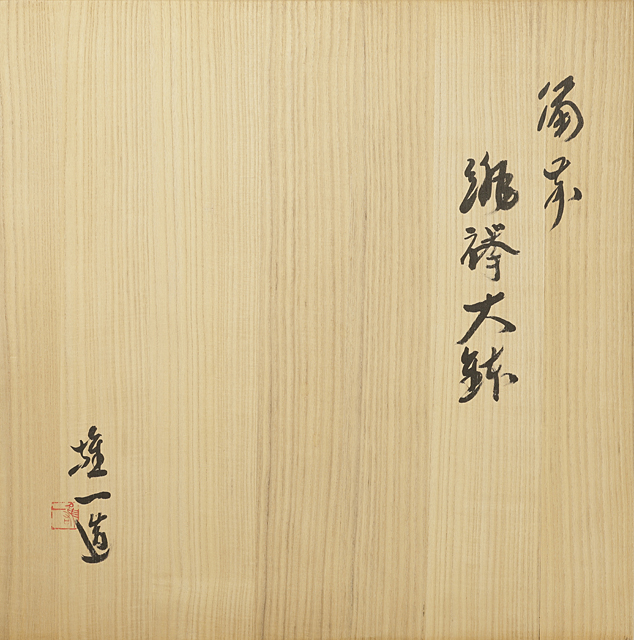 備前
緋襷大鉢
雄一造